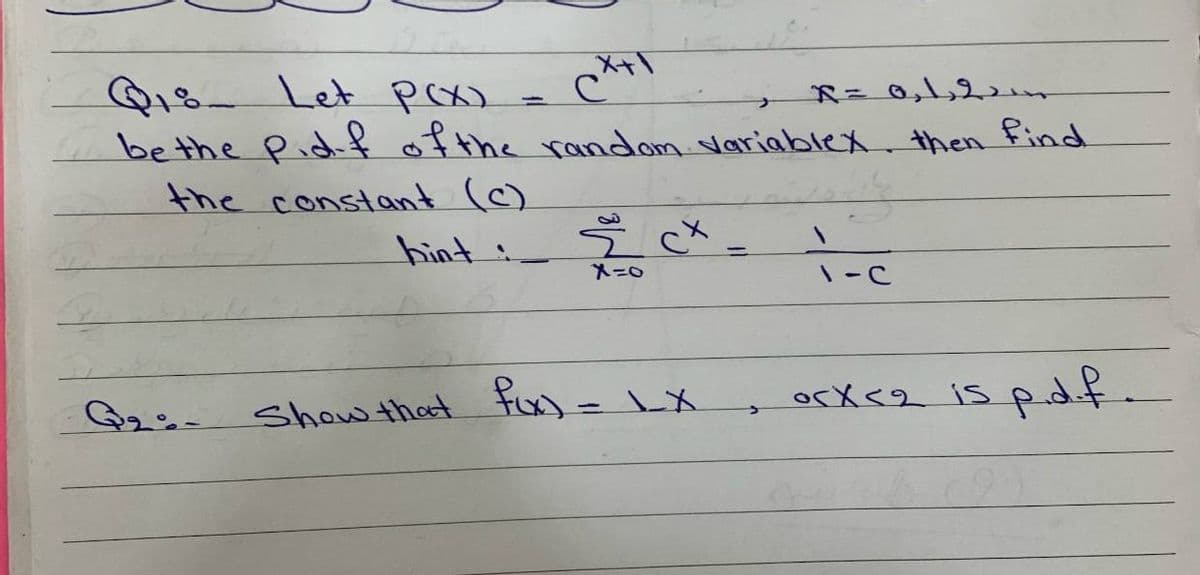 Q1:- Let P(X) = C^{X+1} , X = 0,1,2,...
be the P.d.f of the random variable X. then find
the constant (c)
hint :- \sum_{X=0}^{∞} C^X = \frac{1}{1-C}
Q2:- Show that f(x) = X , 0<X<2 is p.d.f.